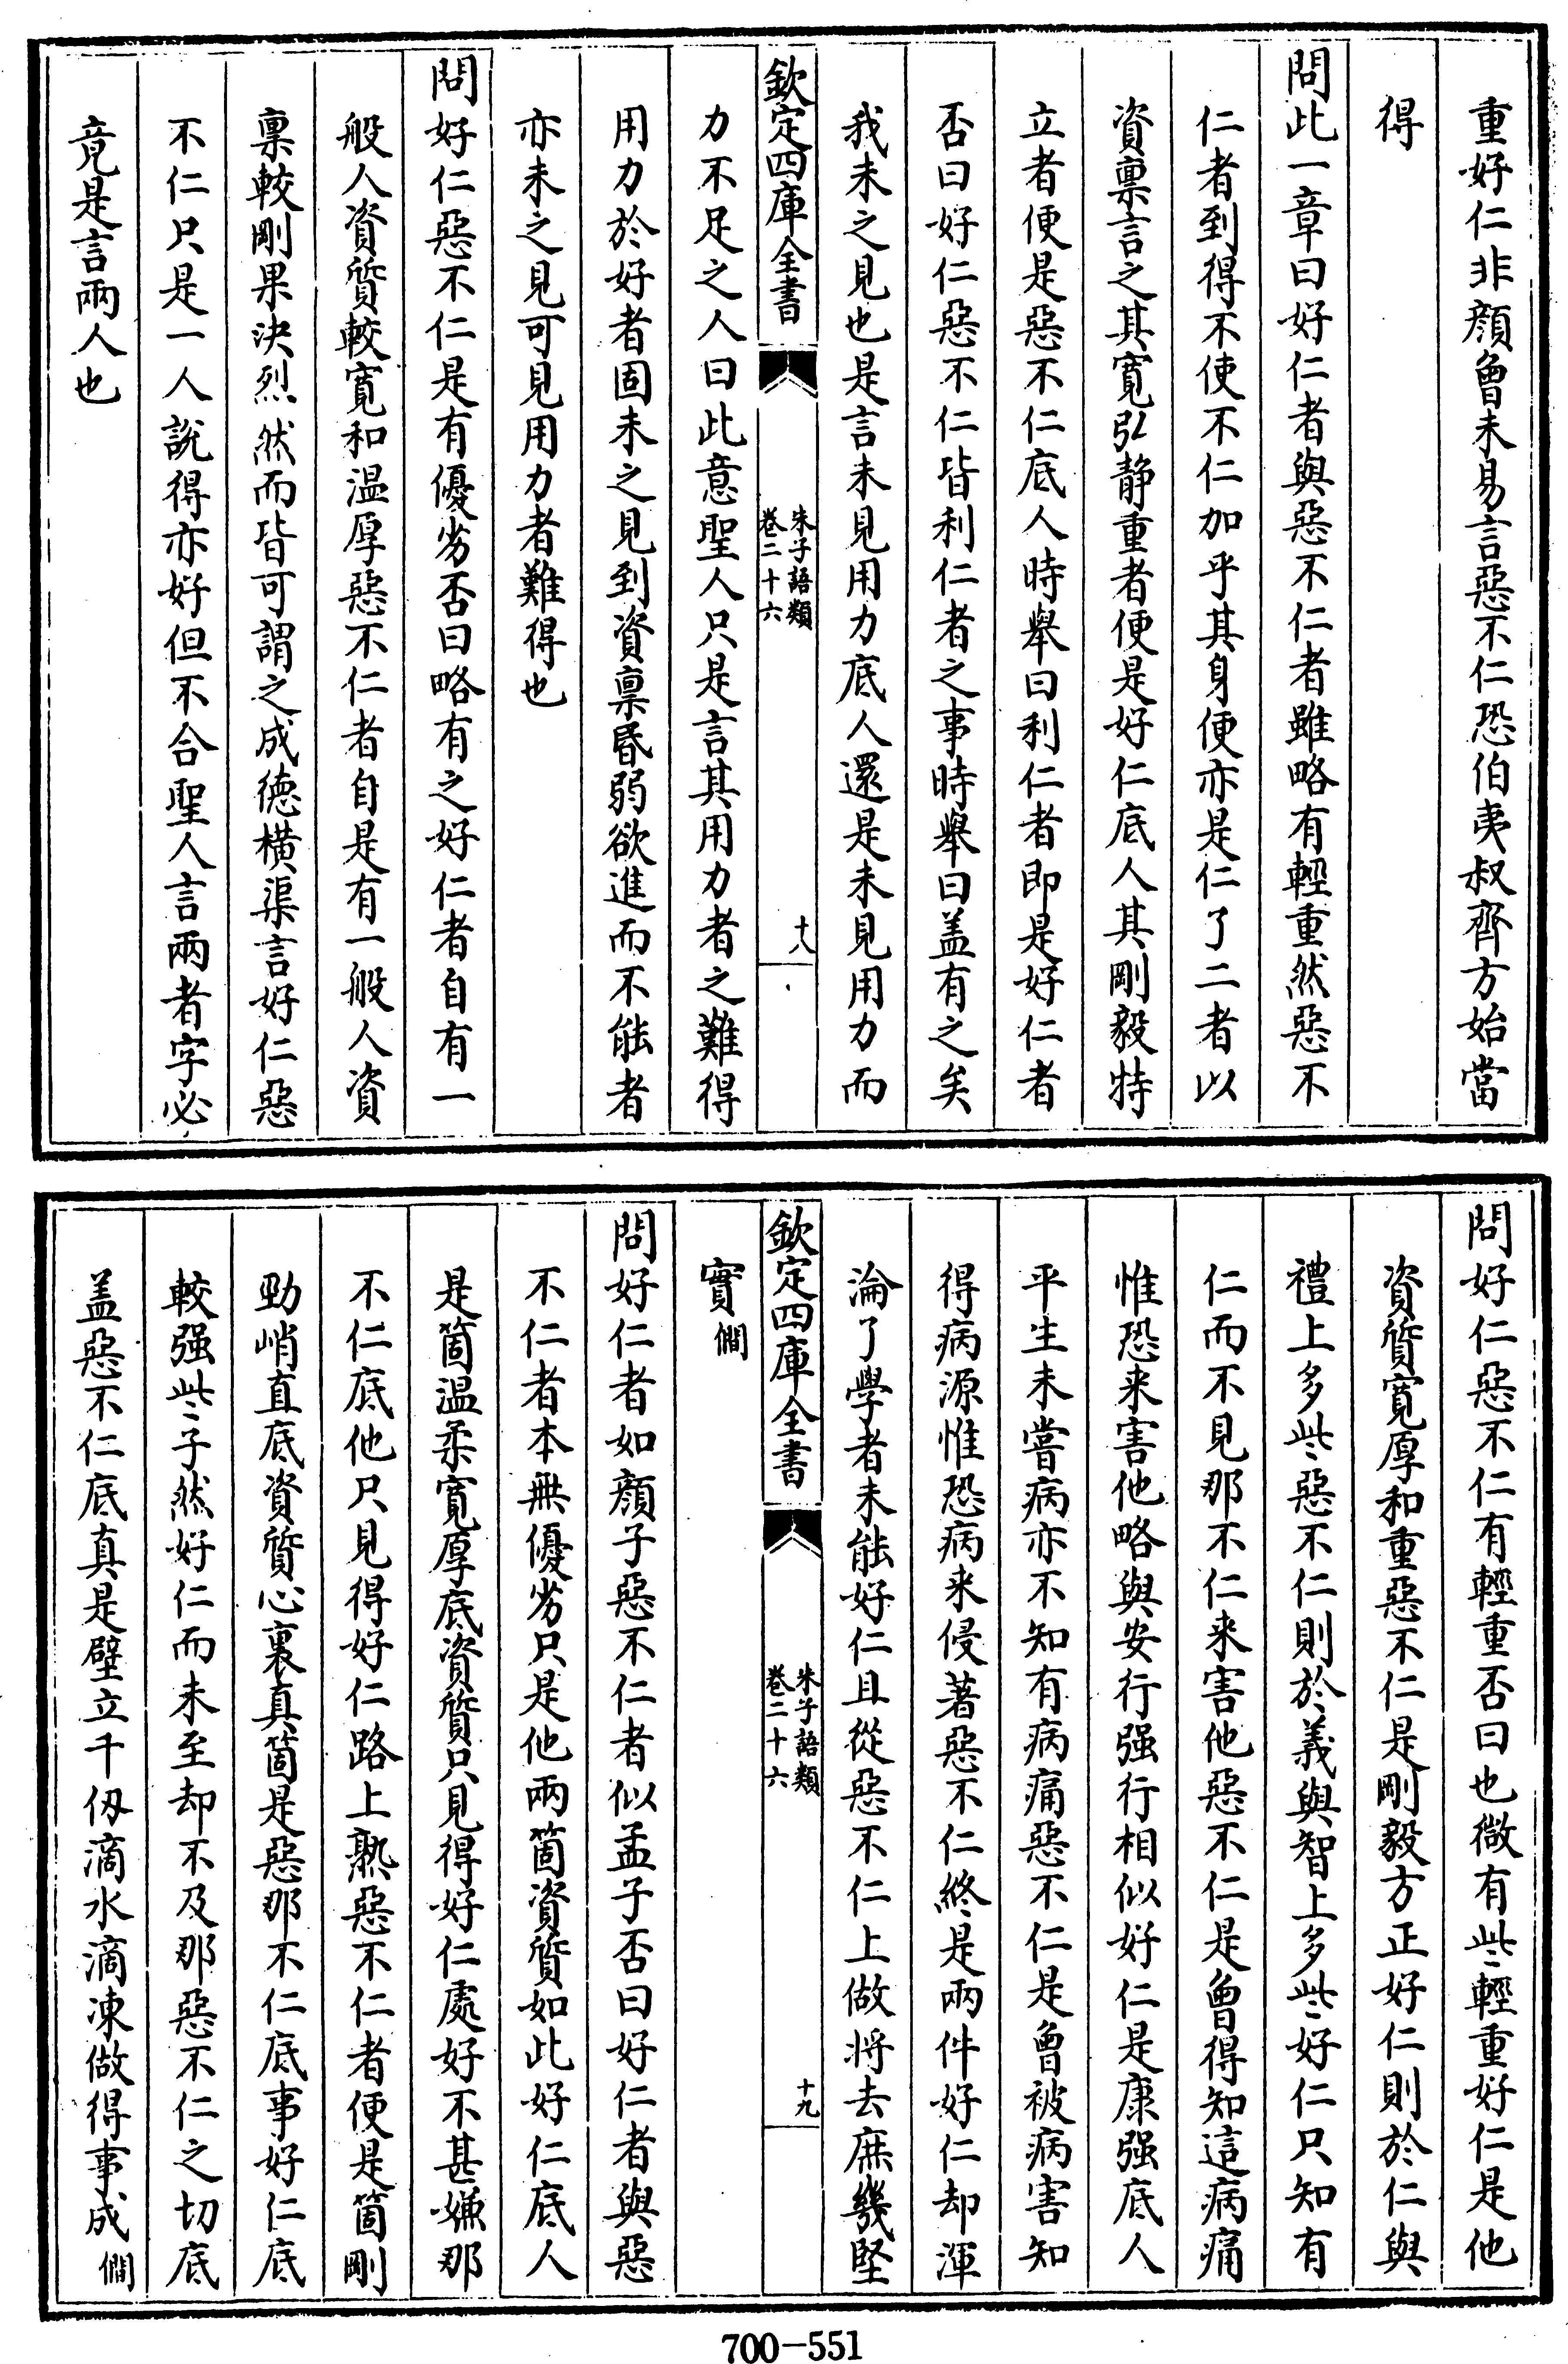 重好仁非顔曾未易言惡不仁恐伯夷叔齊方始當
得
問此一章曰好仁者與惡不仁者雖略有輕重然惡不
仁者到得不使不仁加乎其身便亦是仁了二者以
資禀言之其寛弘静重者便是好仁底人其剛毅特
立者便是惡不仁底人時舉曰利仁者即是好仁者
否曰好仁惡不仁皆利仁者之事時舉曰盖有之矣
我未之見也是言未見用力底人還是未見用力而
欽定四庫全書
朱子語類
卷二十六
十八
力不足之人曰此意聖人只是言其用力者之難得
用力於好者固未之見到資禀昏弱欲進而不能者
亦未之見可見用力者難得也
問好仁惡不仁是有優劣否曰略有之好仁者自有一
般人資質較寛和温厚惡不仁者自是有一般人資
禀較剛果決烈然而皆可謂之成德横渠言好仁惡
不仁只是一人說得亦好但不合聖人言兩者字必
竟是言兩人也
問好仁惡不仁有輕重否曰也微有些輕重好仁是他
資質寛厚和重惡不仁是剛毅方正好仁則於仁與
禮上多些惡不仁則於義與智上多些好仁只知有
仁而不見那不仁来害他惡不仁是曾得知這病痛
惟恐来害他略與安行强行相似好仁是康强底人
平生未嘗病亦不知有病痛惡不仁是曾被病害知
得病源惟恐病来侵著惡不仁終是兩件好仁却渾
淪了學者未能好仁且從惡不仁上做将去庶幾堅
欽定四庫全書
朱子語類
卷二十六
十九
實僩
問好仁者如顔子惡不仁者似孟子否曰好仁者與惡
不仁者本無優劣只是他兩箇資質如此好仁底人
是箇温柔寛厚底資質只見得好仁處好不甚嫌那
不仁底他只見得好仁路上熟惡不仁者便是箇剛
勁峭直底資質心裏真箇是惡那不仁底事好仁底
較强些子然好仁而未至却不及那惡不仁之切底
盖惡不仁底真是壁立千仭滴水滴凍做得事成僩
700-551